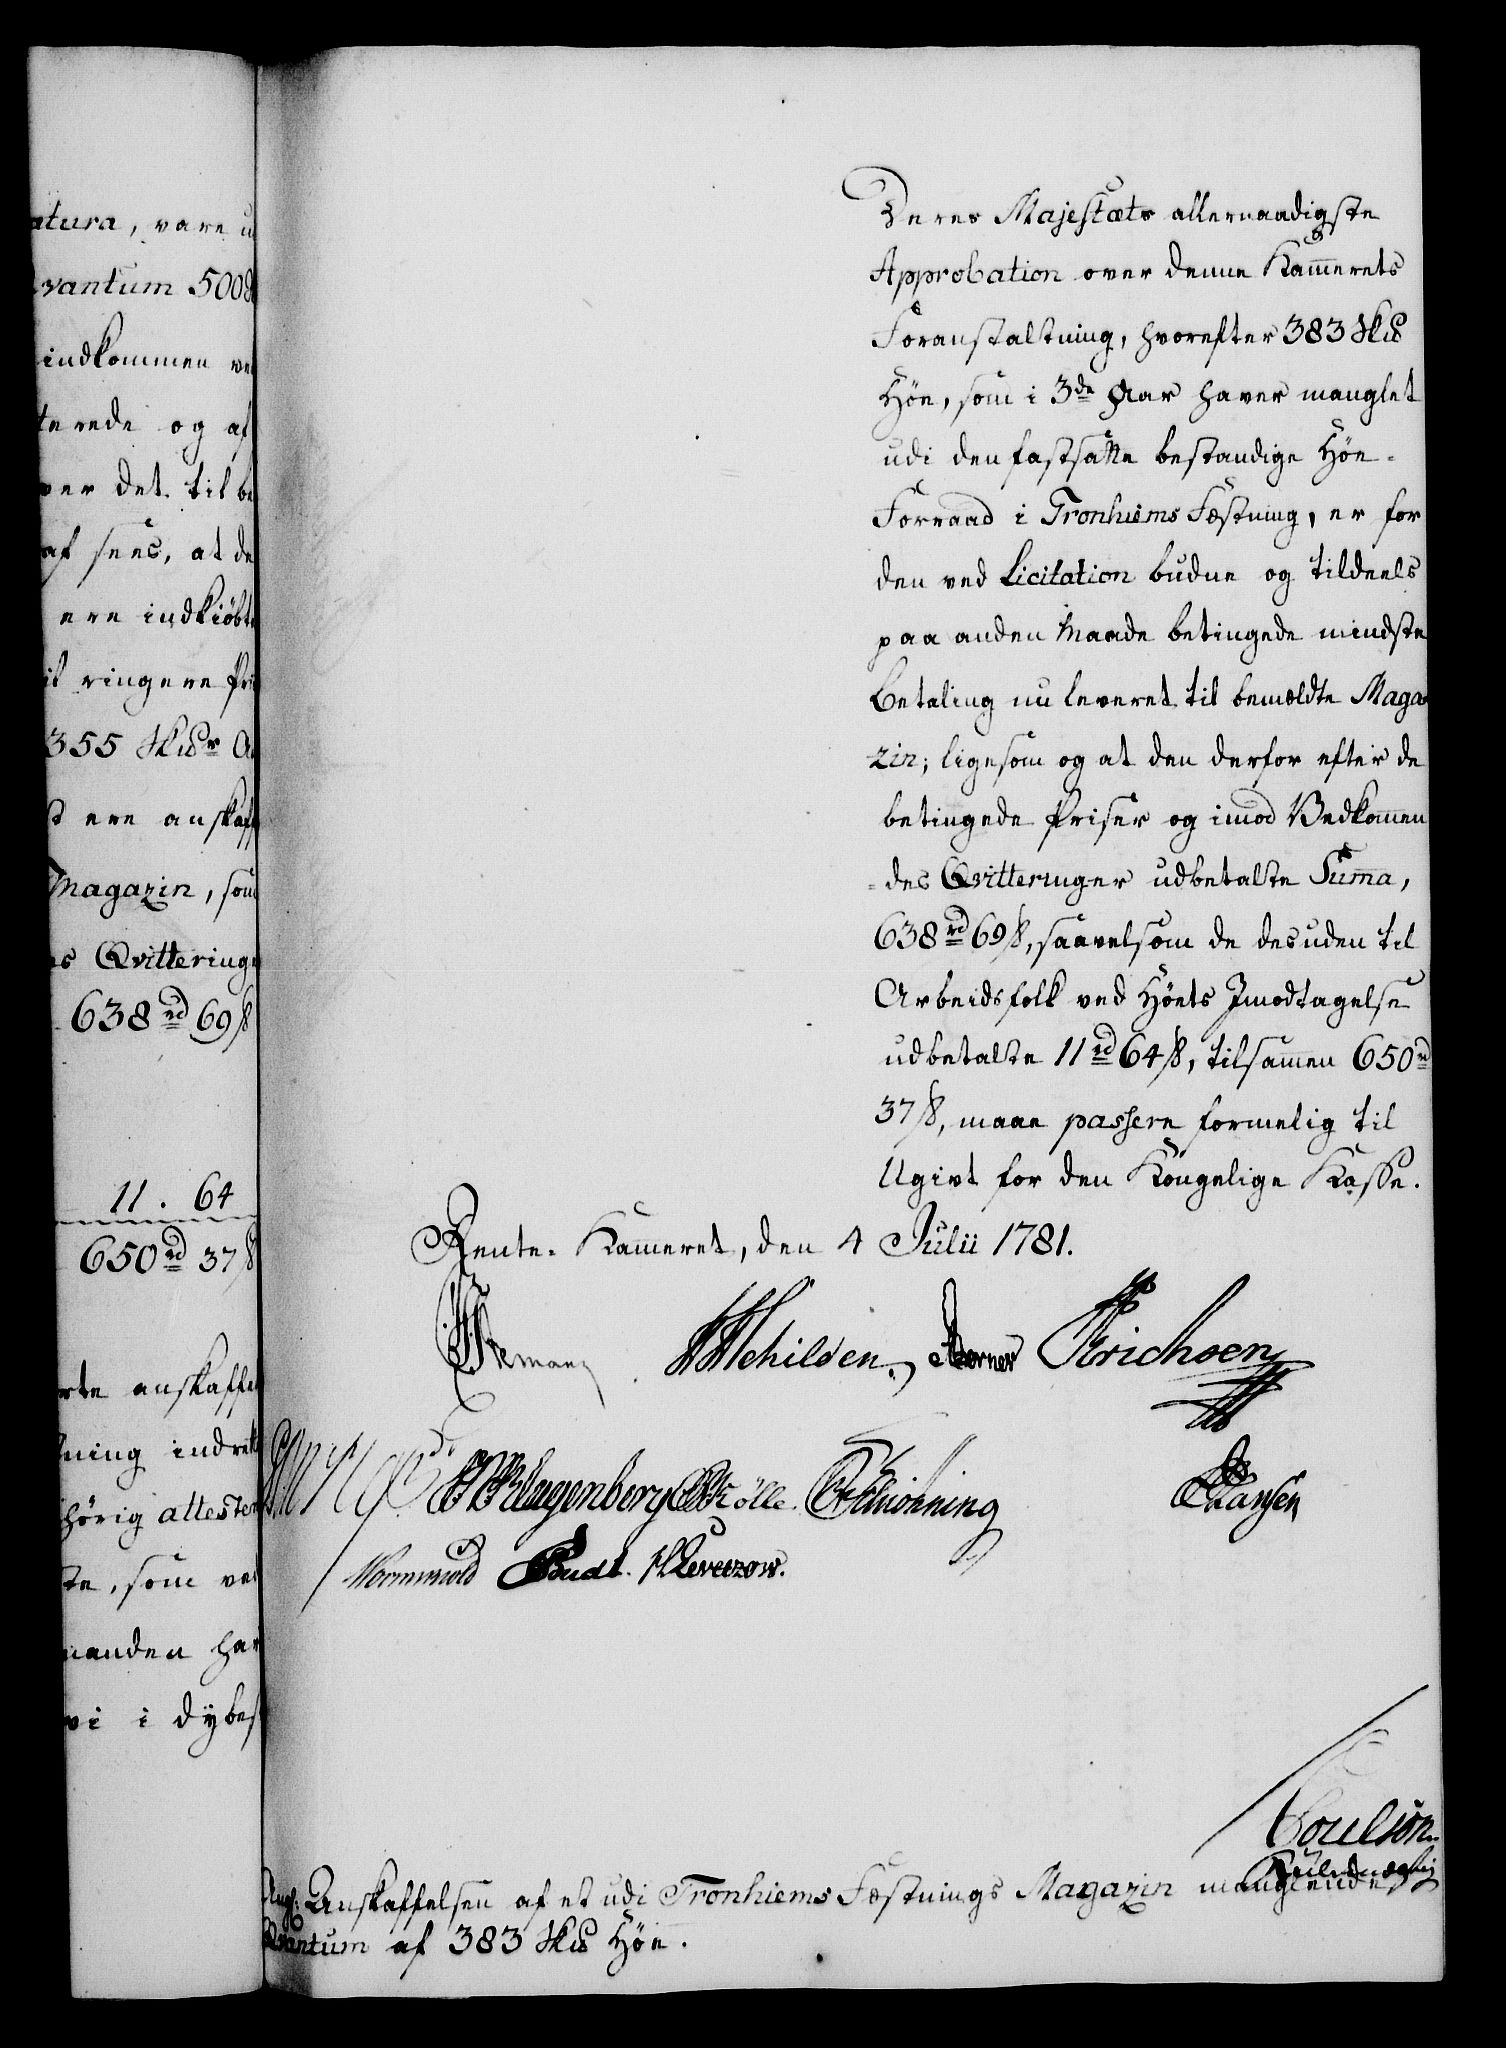 atura, vare u
qvantum 500
indkommen ve
terede og af
ver det til be
af sees, at de
ere indkiöbt
it ringere Pri
355 Sk℔r
t ere anskaff
Magazin, som
es Qvittering
638 rd 69 ß
11. 64
650 rd 37 ß
rte anskaffe
ning indret
hörig attester
te, som ve
manden har
vi i dybes
Deres Majestæts allernaadigste
Approbation over denne Kammerets
Foranstaltning, hvorefter 383 Sk℔
Höe, som i 3de Aar haver manglet
udi den fastsatte bestandige Höe-
Forraad i Tronhiems Fæstning, er for
den ved Licitation budne og tildeels
paa anden Maade betingede mindste
Betaling nu leveret til bemældte Maga
zin; ligesom og at den derfor efter de
betingede Priser og imod Vedkommen
-des Qvitteringer udbetalte Summa,
638 rd 69 ß, saavelsom de desuden til
Arbeidsfolk ved Höets Imodtagelse
udbetalte 11 rd 64 ß, tilsammen 650 rd
37 ß, maae passere formelig til
Udgivt for den Kongelige Kasse.
Rente-Kammeret, den 4 Julii 1781.
Schilden. Berner Erichsen
Klagenberg Kölle. Schiönning Hansen
Wormskiold Budt. Levetzow.
Poulson
Anskaffelsen af et udi Tronhiems Fæstnings Magazin manglende
Qvantum af 383 Sk℔ Höe.